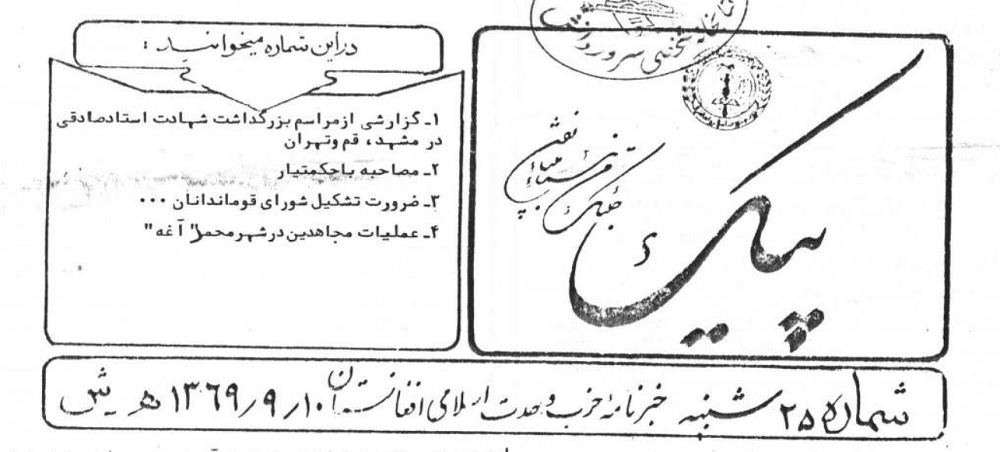 پیک
در این شماره میخوانید:
۱ـ گزارشی ازمراسم بزرگداشت شهادت استادصادقی
در مشهد، قم وتهران
۲ـ مصاحبه باحکمتیار
۳ـ ضرورت تشکیل شورای قوماندانان ۰۰۰
۴ـ عملیات مجاهدین درشهر محمد" آغه"
شماره ۲۵ شنبه خبرنامهٔ حزب وحدت اسلامی افغانستان ۱۳۶۹٫۹٫۱۰ هـ ش